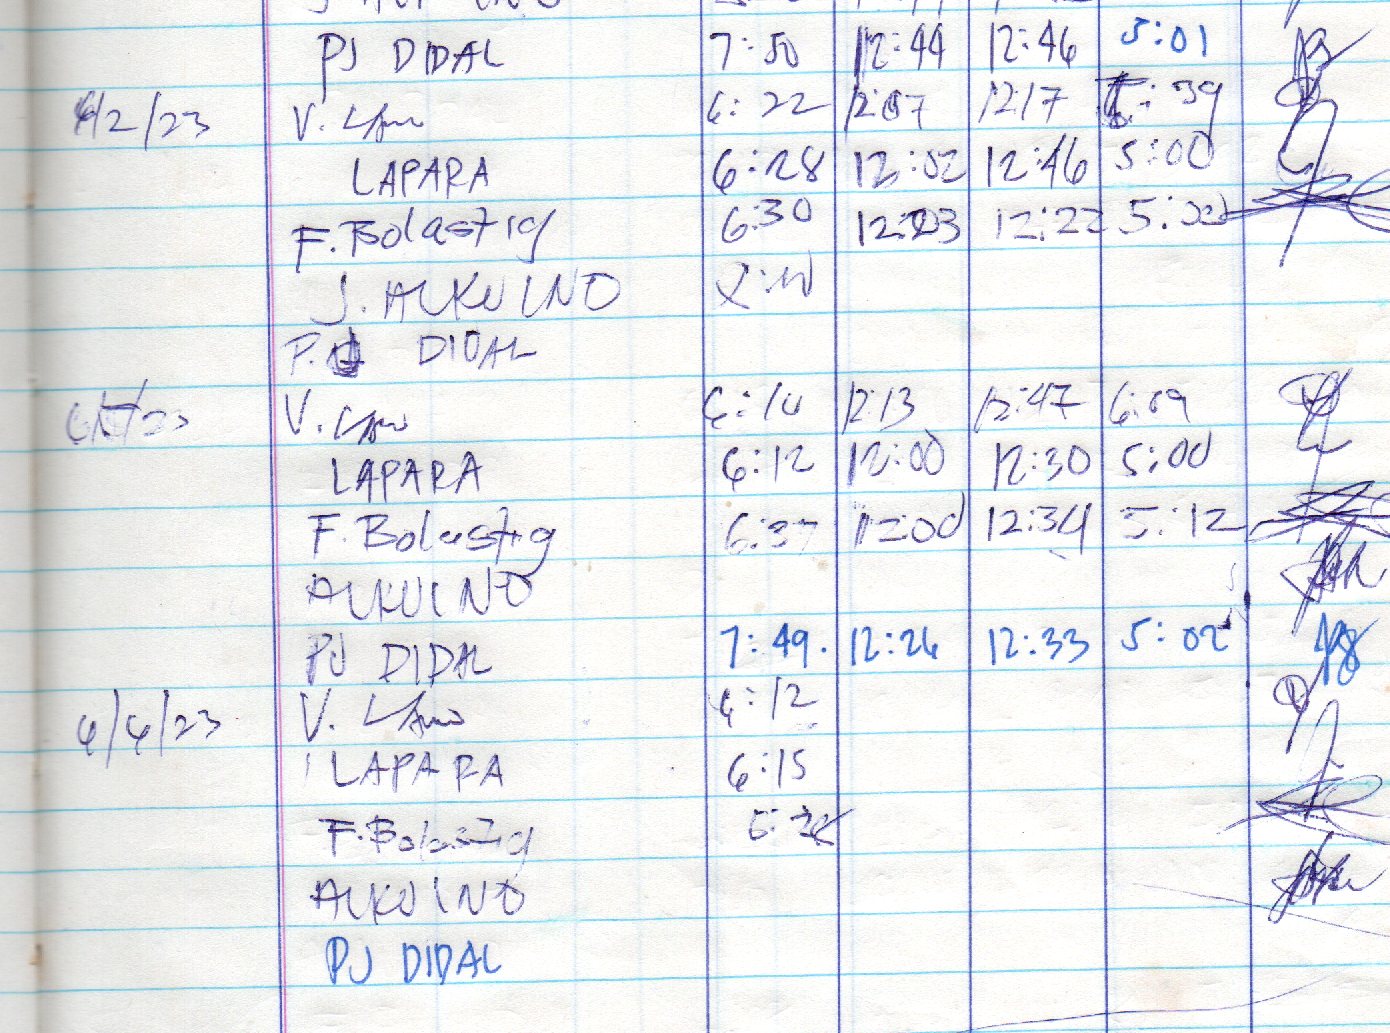 PJ DIDAL 7:50 12:44 12:46 5:01
6/2/23 V. 6:22 12:07 12:17 :39
LAPARA 6:28 12:02 12:46 5:00
F. Bolastig 6:30 12:03 12:22 5:00
J. ALKUINO
P.J DIDAL
V. 6:10 12:13 12:47 6:09
LAPARA 6:12 12:00 12:30 5:00
F. Bolastig 6:37 12:00 12:34 5:12
ALKUINO
PJ DIDAL 7:49. 12:26 12:33 5:02
6/6/23 V. 6:12
LAPARA 6:15
F. Bolastig
ALKUINO
PJ DIDAL